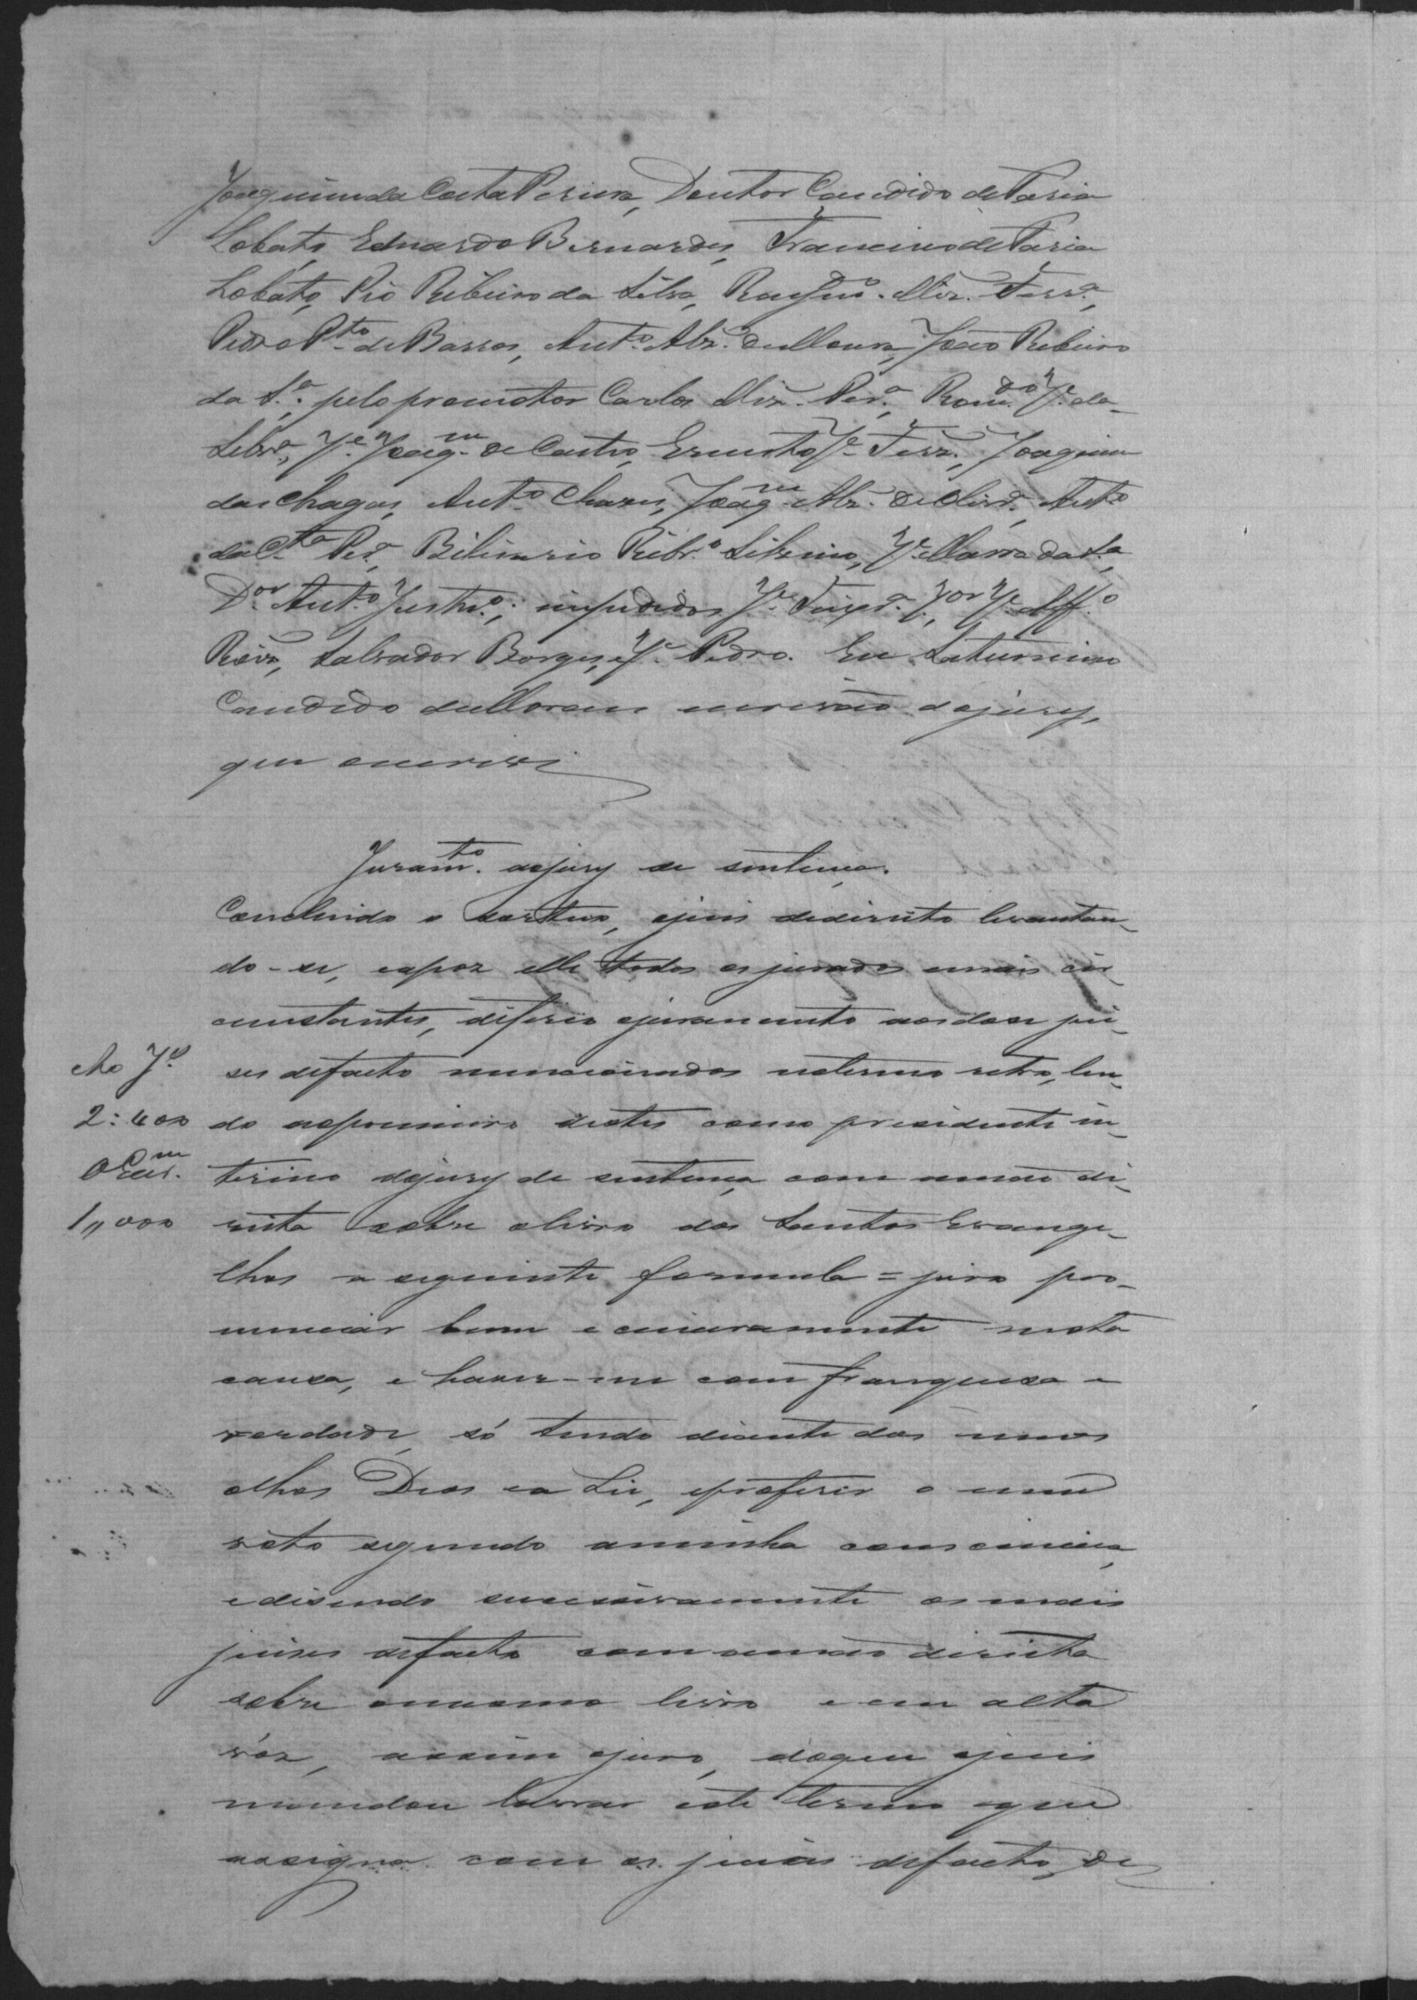 Joaquim da Costa Pereira, Doutor Candido de Faria
Lobato, Eduardo Bernardes, Francisco de Faria
Lobato, Pio Ribeiro da Silva, Ferr.ª,
Pedro P.to de Barros, Ant.º Alz. de Moura, João Ribeiro
da S.ª, pelo promotor Carlos Per.ª, J.e da
Silvr.ª, J.e Joaq.m de Castro, Ernesto J.e Ferr.ª, Joaquim
das Chagas, Ant.º Chaves, Joaq.m Alz. de Ant.º
da C.ta Per.ª, Ribr.º Silverio, J.e da S.ª,
D.or Ant.º impedidos J.e J.e Aff.º
Salvador Borges, e J.e Pedro. Eu Saturnino
Candido de Moraes escrivão do jury,
que escrivi
Juram.to do jury de sentença.
Concluido o sorteio, o juis de direito levantan-
do-se, e apoz elle todos os jurados e mais cir-
cunstantes, diferio o juramento aos doze jui-
ses de facto mencionados no termo retro, len-
do ao primeiro destes como presidente in-
terino do jury de sentença, com a mão di-
reita sobre o livro dos Santos Evange-
lhos a seguinte formula = juro pro-
nunciar bem e sinceramente nesta
causa, e haver-me com franquesa e
verdade, só tendo diante dos meus
olhos Deos e a Lei, e proferir o meu
voto segundo a minha consciencia,
e disendo sucessivamente os mais
juises de facto com a mão direita
sobre o mesmo livro e em alta
vóz, assim o juro, do que o juis
mandou lavrar este termo que
assigna com os juises de facto, De
Ao J.º
2:400
Ao Escr.m
1,,000